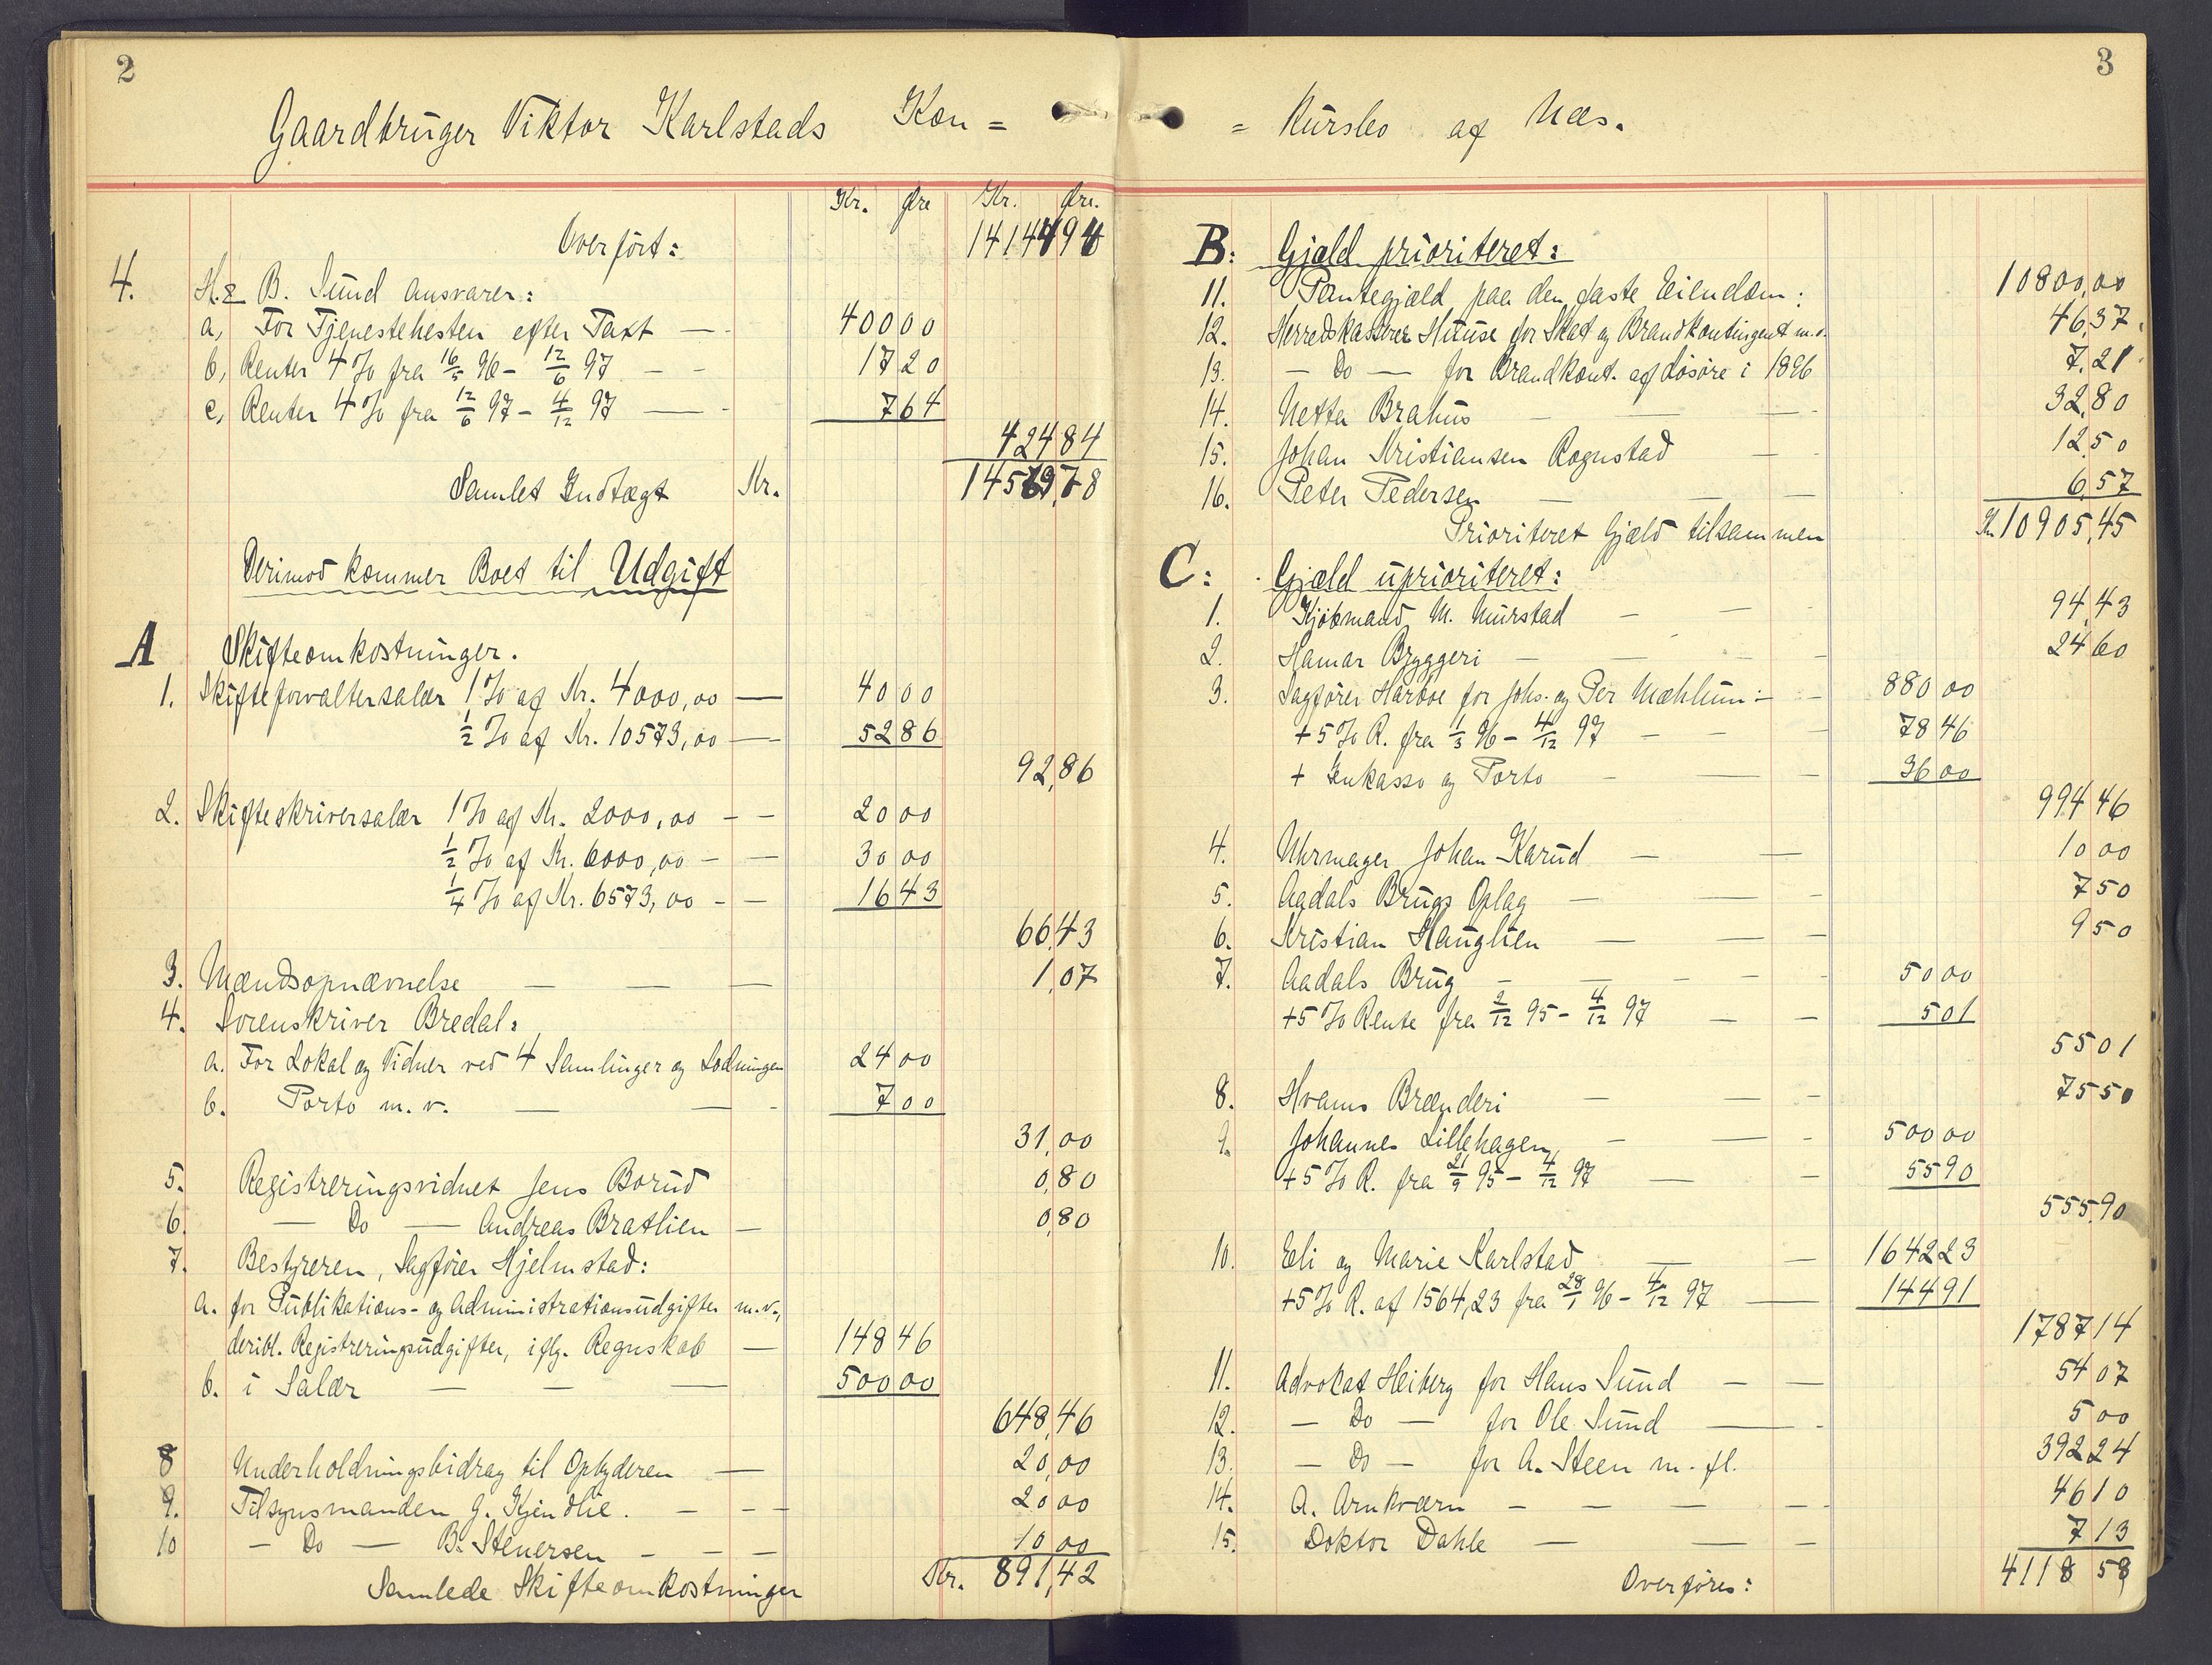 2
Gaardbruger Viktor Karlstads Kon =
Kr. Øre Kr. Øre.
Overført: 14144 94
4. H. & B. Sund ansvarer:
a, For Tjenestehesten efter Taxt — 400 00
b, Renter 4 % fra 16/5 96 - 12/6 97 — 17 20
c, Renter 4 % fra 12/6 97 - 4/12 97 — 7 64
424 84
Samlet Indtægt Kr. 14569,78
Derimod kommer Boet til Udgift
A Skifteomkostninger.
1. Skifteforvaltersalær 1 % af Kr. 4000,00 — 40 00
1/2 % af Kr. 10573,00 — 52 86
92,86
2. Skifteskriversalær 1 % af Kr. 2000,00 — 20 00
1/2 % af Kr. 6000,00 — 30 00
1/4 % af Kr. 6573,00 — 16 43
66,43
3. Mændsopnævnelse — 1,07
4. Sorenskriver Bredal:
a. For Lokal og Vidner ved 4 Samlinger og Lodningen 24 00
b. Porto m.v. — 7 00
31,00
5. Registreringsvidnet Jens Borud 0,80
6. — Do — Andreas Bratlien — 0,80
7. Bestyreren, Sagfører Hjelmstad:
a. for Publikations- og Administrationsudgifter m.v.,
deribl. Registreringsudgifter, iflg. Regnskab — 148 46
b. i Salær — 500 00
648,46
8 Underholdningsbidrag til Opbyderen — 20,00
9. Tilsynsmanden G. Kjendlie. — 20 00
10 — Do — B. Stenersen — 10 00
Samlede Skifteomkostninger Kr. 891,42
3
= Kursbo af Næs.
B: Gjæld prioriteret:
11. Pantegjæld paa den faste Eiendom: 10800,00
12. Herredskasserer Huuse for Skat og Brandkontingent m.v. 46,37
13. — Do — for Brandkont. af Løsøre i 1896 7,21
14. Netta Brahus — 32,80
15. Johan Kristiansen Rognstad — 12,50
16. Peter Pedersen — 6,57
Prioriteret Gjæld tilsammen Kr. 10905,45
C: Gjæld uprioriteret:
1. Kjøbmand M. Murstad — 94,43
2. Hamar Bryggeri — 24 60
3. Sagfører Harboe for Johs. og Per Mæhlum:— 880 00
+ 5 % R. fra 1/3 96 - 4/12 97 — 78 46
+ Inkasso og Porto — 36 00
994 46
4. Uhrmager Johan Karud — 10 00
5. Aadals Brugs Oplag — 7 50
6. Kristian Hauglien — 9 50
7. Aadals Brug — 50 00
+ 5 % Rente fra 2/12 95 - 4/12 97 — 5 01
55 01
8. Hvams Brænderi — 75 50
9. Johannes Lillehagen, — 500 00
+ 5 % R. fra 21/9 95 - 4/12 97 — 55 90
555,90
10. Eli og Marie Karlstad — 1642 23
+ 5 % R. af 1564,23 fra 28/1 96 - 4/12 97 — 144 91
1787 14
11. Advokat Heiberg for Hans Sund — 54 07
12. — Do — for Ole Sund — 5 00
13. — Do — for A. Steen m. fl. 392 24
14. A. Arnkværn — 46 10
15. Doktor Dahle — 7 13
Overføres: 4118 58